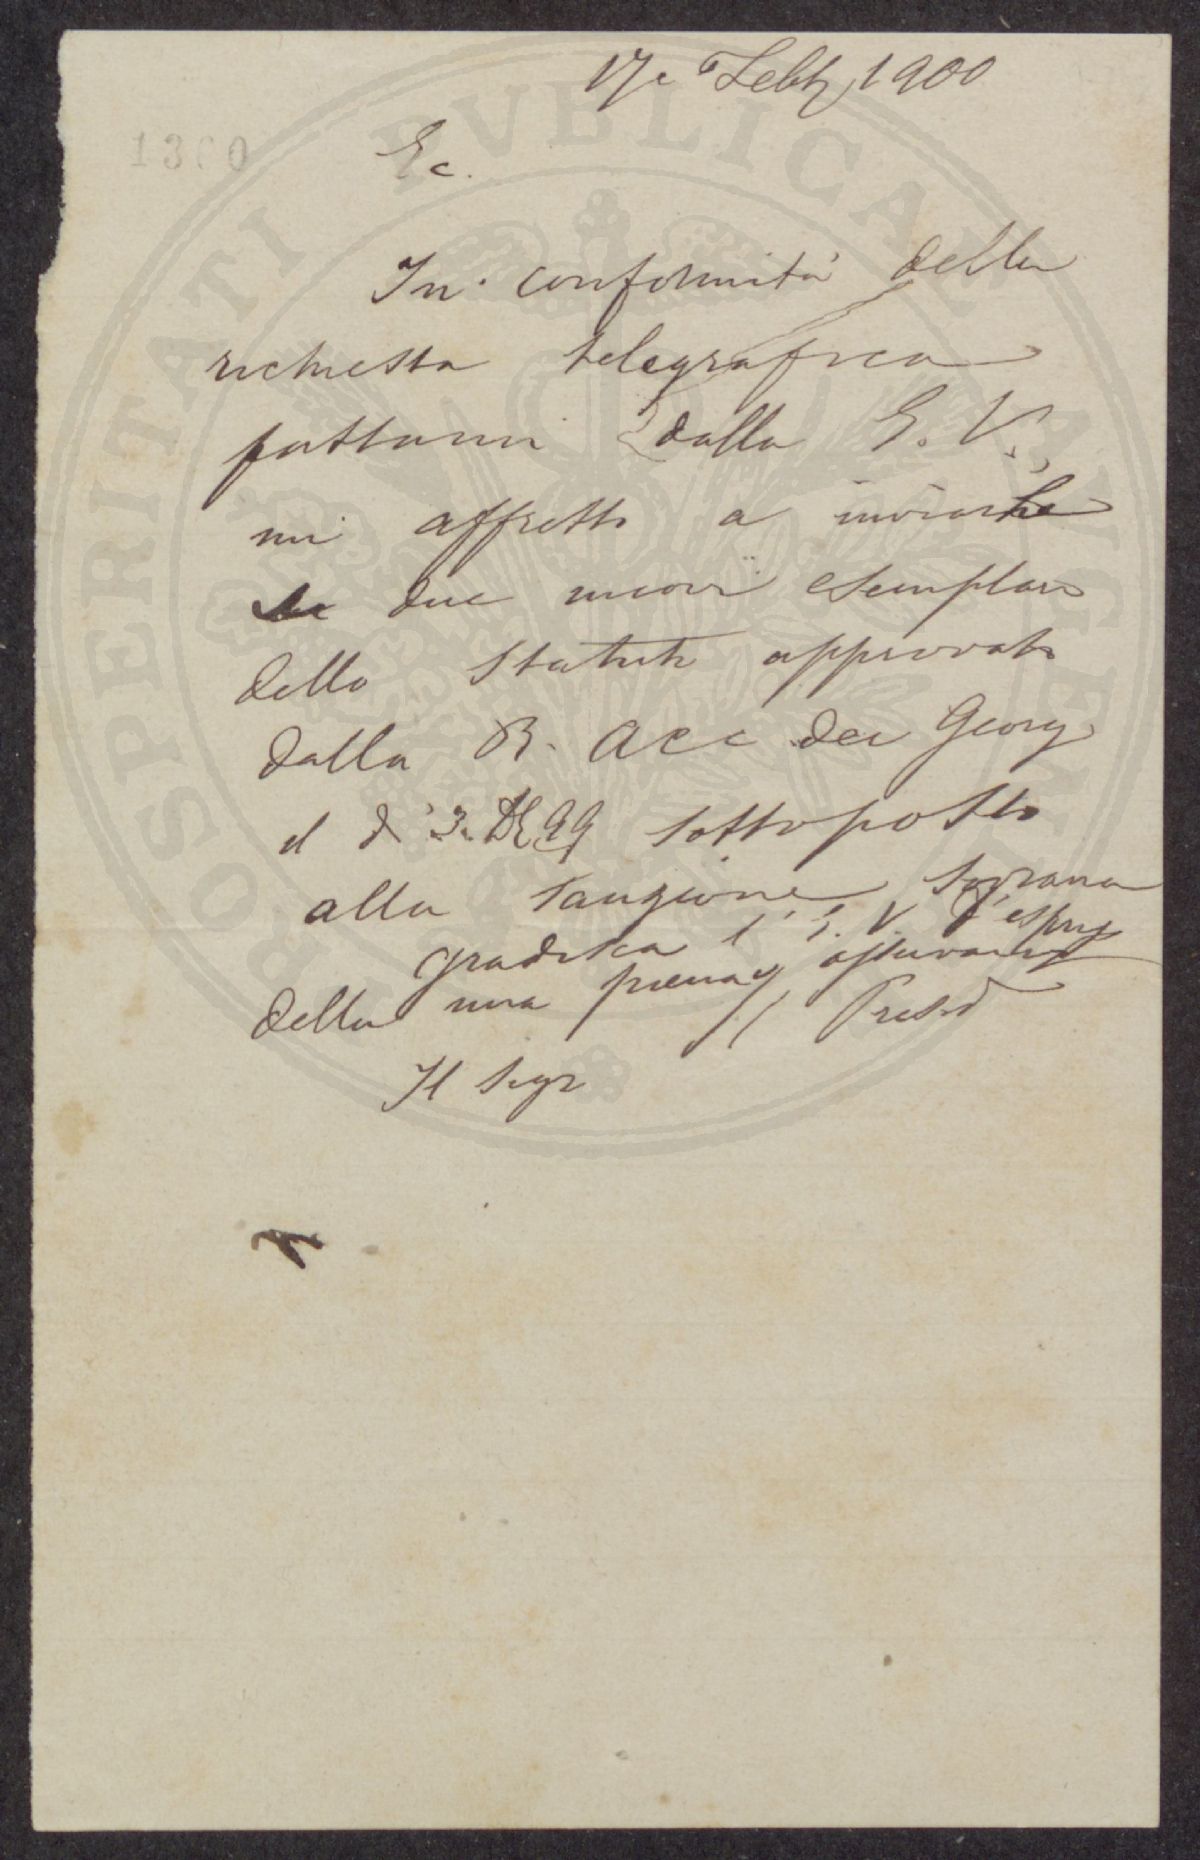 17 Febb 1900
1360
Ec.
In conformità della
richiesta telegrafica
fattami dalla E. V.
mi affretto a inviarle
due nuovi esemplari
dello Statuto approvato
dalla R. Acc dei Georg
il dì 3. 99 sottoposto
alla sanzione sovrana
gradisca l' E. V. l'espres
della mia piena osservanza
Il Presid
Il Segr
PROSPERITATI PVBLICAE AVGENDAE